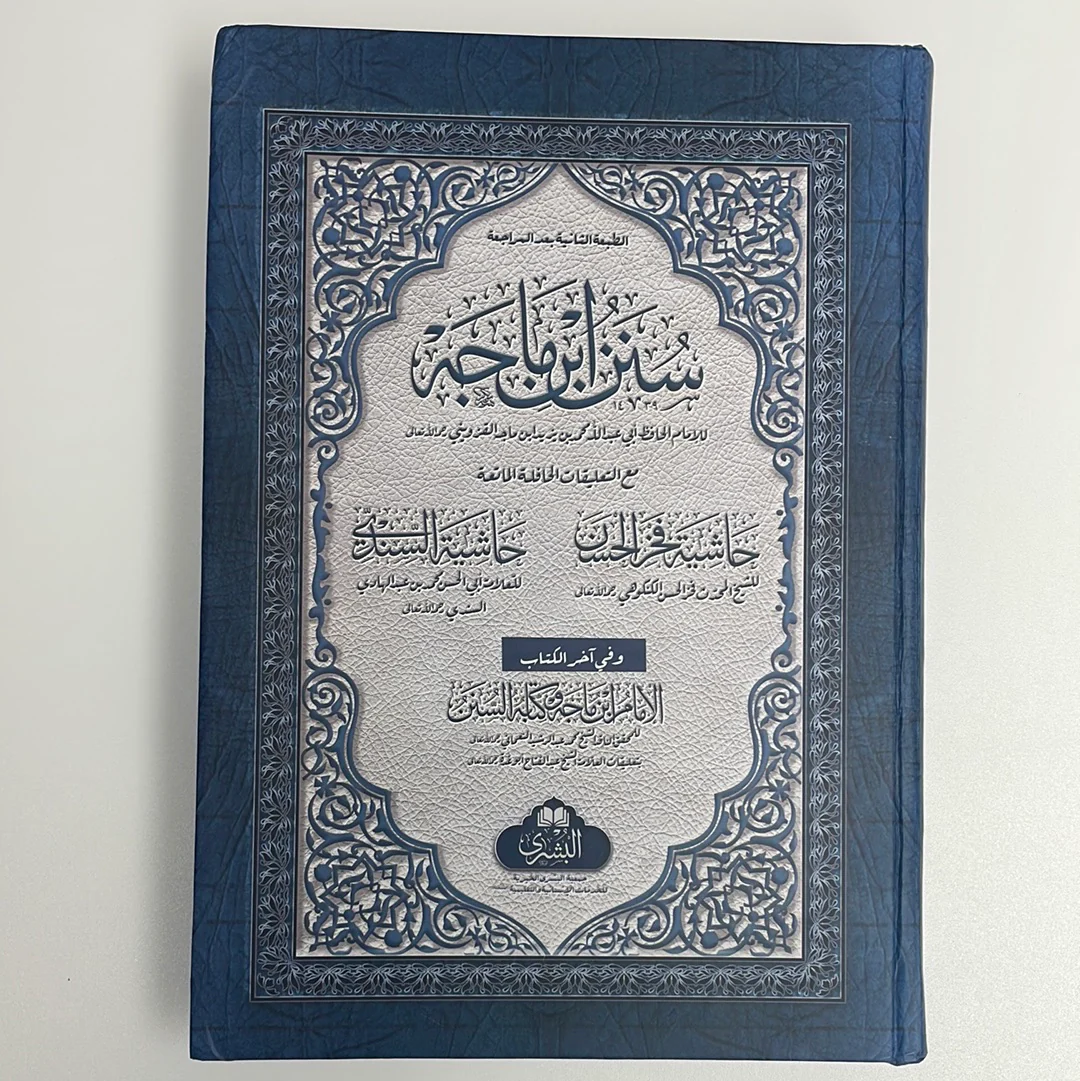 الطبعة الثانية بعد المراجعة
سُنَنُ ابْنِ مَاجَهْ
للإمام الحافظ أبي عبد الله محمد بن يزيد ابن ماجه القزويني رحمه الله تعالى
مع التعليقات الحافلة الماتعة
حاشية فخر الحسن
للشيخ المحدث فخر الحسن الكنكوهي رحمه الله تعالى
حاشية السندي
للعلامة أبي الحسن محمد بن عبد الهادي
السندي رحمه الله تعالى
وفي آخر الكتاب
الإمام ابن ماجه وكتابه السنن
للمحقق الناقد الشيخ محمد عبد الرشيد النعماني رحمه الله تعالى
بتعليقات العلامة الشيخ عبد الفتاح أبو غدة رحمه الله تعالى
البشرى
جمعية البشرى الخيرية
للخدمات الإنسانية والتعليمية